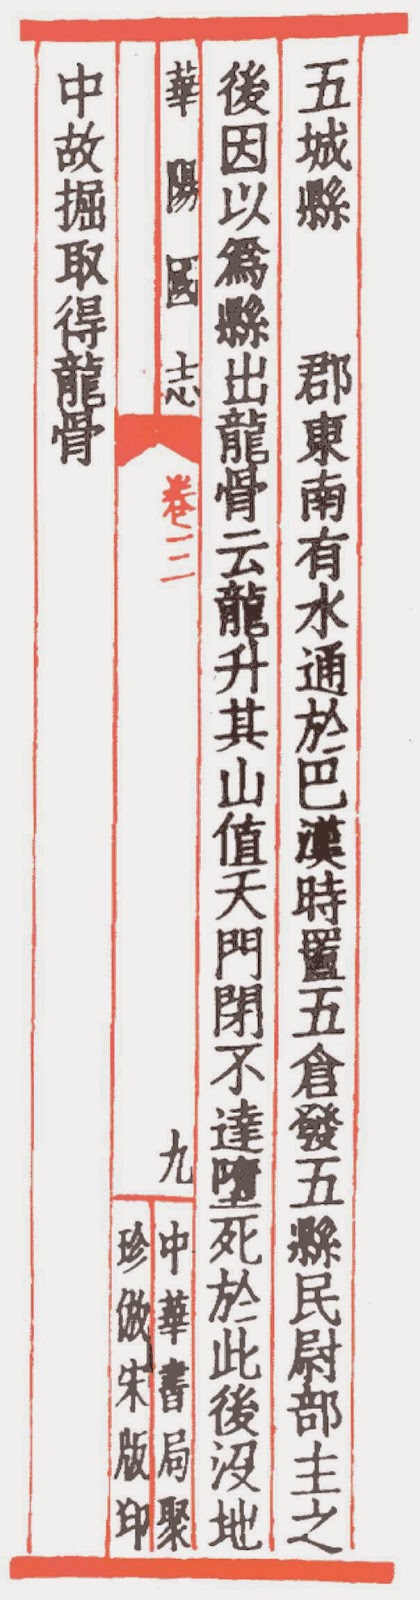 五城縣　郡東南有水通於巴漢時置五倉發五縣民尉部主之
後因以爲縣出龍骨云龍升其山值天門閉不達墮死於此後沒地
華陽國志
卷三
九
中華書局聚
珍倣宋版印
中故掘取得龍骨